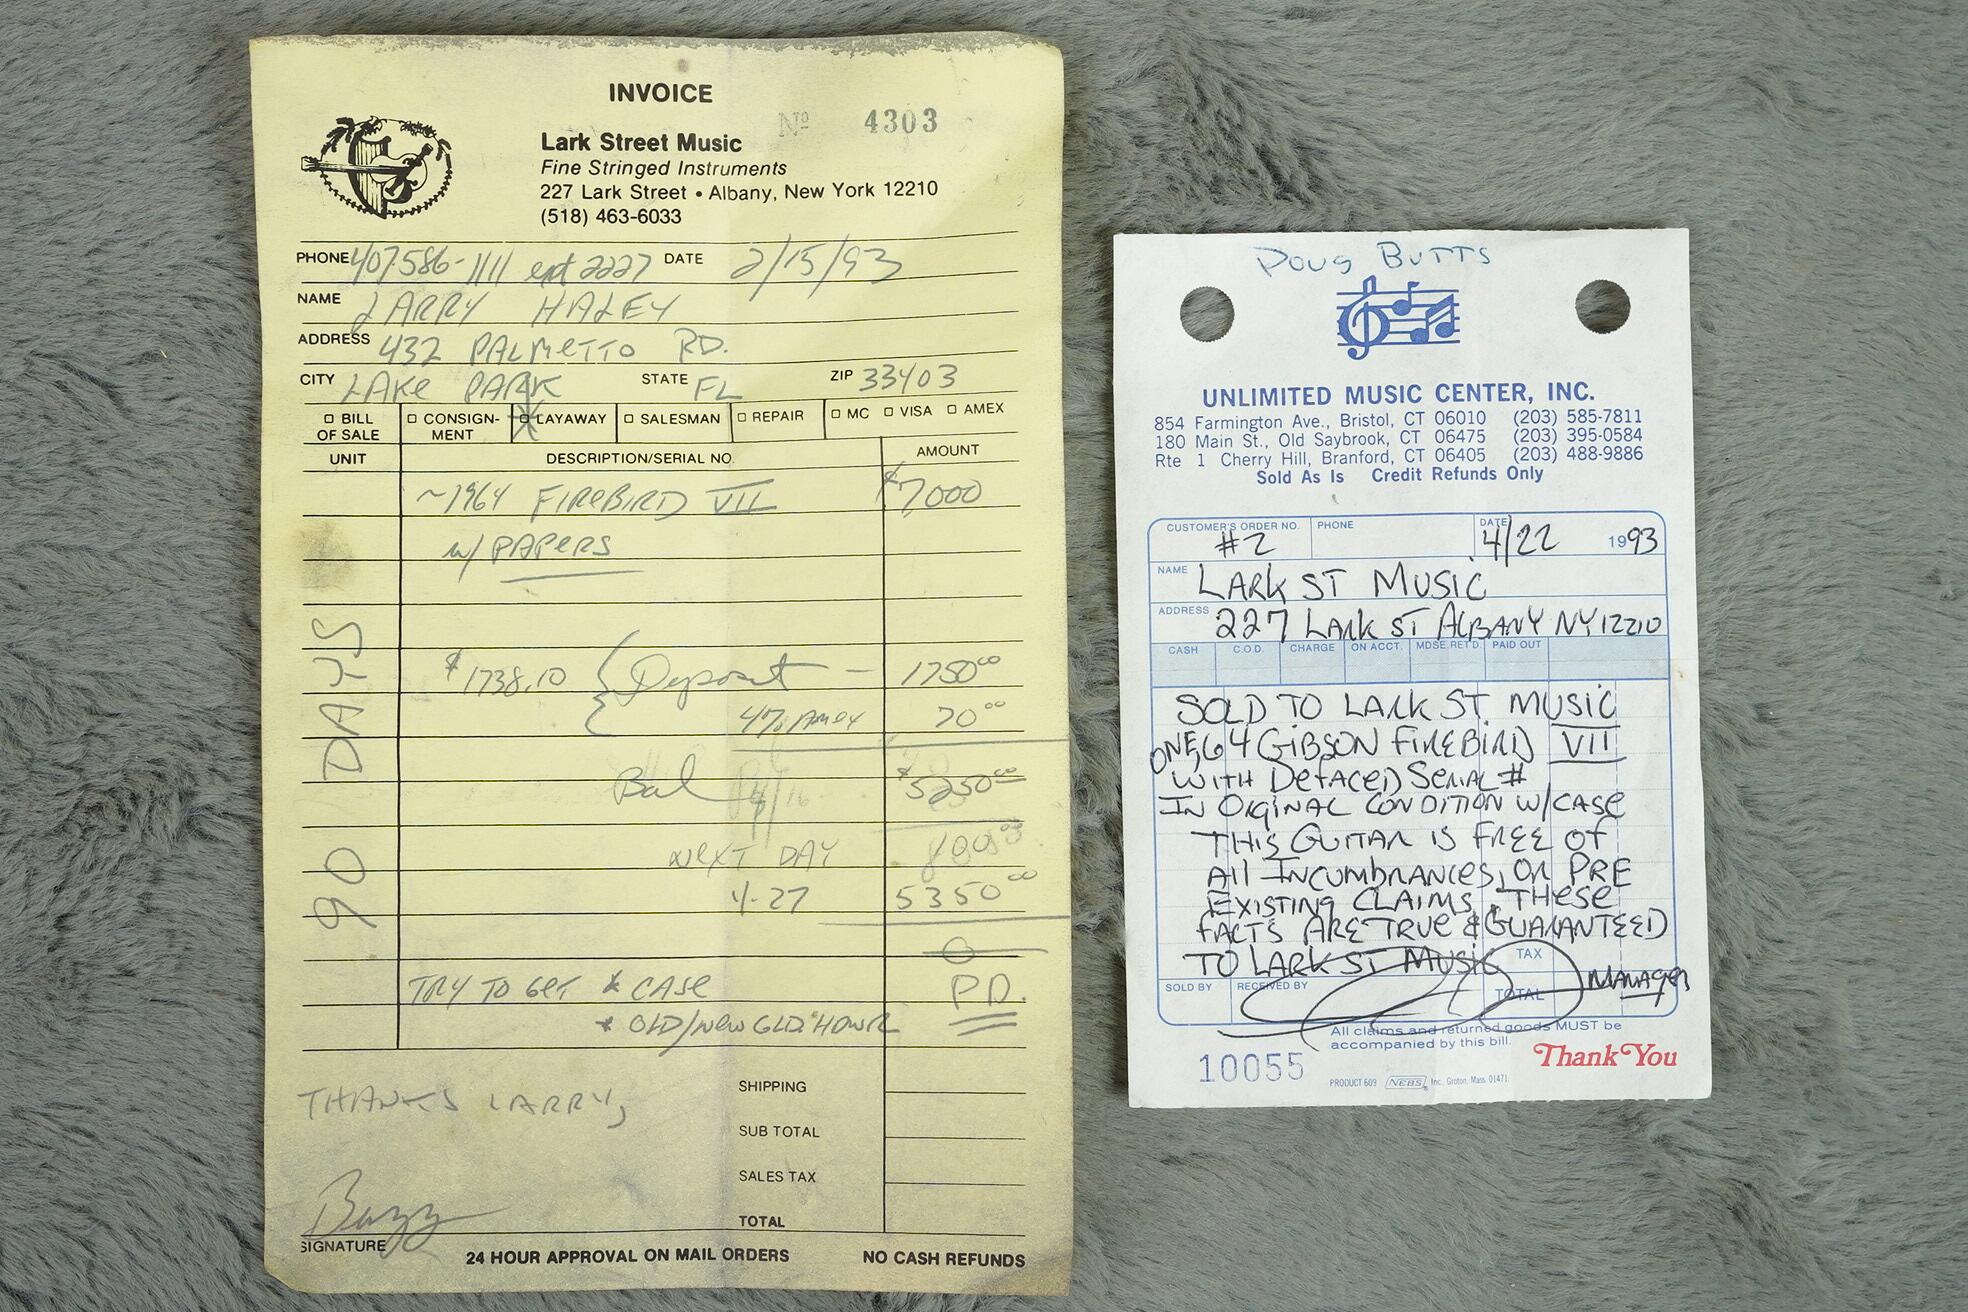 INVOICE
No 4303
Lark Street Music
Fine Stringed Instruments
227 Lark Street • Albany, New York 12210
(518) 463-6033
PHONE 407-586-1111 ext 2227 DATE 2/15/93
NAME LARRY HALEY
ADDRESS 432 PALMETTO RD.
CITY LAKE PARK STATE FL ZIP 33403
BILL OF SALE CONSIGN-MENT LAYAWAY SALESMAN REPAIR MC VISA AMEX
UNIT DESCRIPTION/SERIAL NO. AMOUNT
~1964 FIREBIRD VII $7000
w/ PAPERS
90 DAYS
$1738.10 Deposit — 1750.00
4% Amex 70.00
Bal $5250.00
NEXT DAY 100.00
4-27 5350.00
0
TRY TO GET * CASE PD.
* OLD/NEW GLD.
THANKS LARRY,
Buzz
SHIPPING
SUB TOTAL
SALES TAX
TOTAL
SIGNATURE
24 HOUR APPROVAL ON MAIL ORDERS NO CASH REFUNDS
DOUG BUTTS
UNLIMITED MUSIC CENTER, INC.
854 Farmington Ave., Bristol, CT 06010 (203) 585-7811
180 Main St., Old Saybrook, CT 06475 (203) 395-0584
Rte 1 Cherry Hill, Branford, CT 06405 (203) 488-9886
Sold As Is Credit Refunds Only
CUSTOMER'S ORDER NO. #2 PHONE DATE 4/22 1993
NAME LARK ST MUSIC
ADDRESS 227 LARK ST ALBANY NY 12210
CASH C.O.D. CHARGE ON ACCT. MDSE RET'D. PAID OUT
SOLD TO LARK ST. MUSIC
ONE, 64 GIBSON FIREBIRD VII
WITH DEFACED SERIAL #
IN ORGINAL CONDITION W/CASE
THIS GUITAR IS FREE OF
All INCUMBRANCES, OR PRE
EXISTING CLAIMS, THESE
FACTS ARE TRUE & GUARANTEED
TO LARK ST MUSIC TAX
MANAGER
SOLD BY RECEIVED BY TOTAL
All claims and returned goods MUST be
accompanied by this bill.
10055 Thank You
PRODUCT 609 NEBS Inc., Groton, Mass. 01471